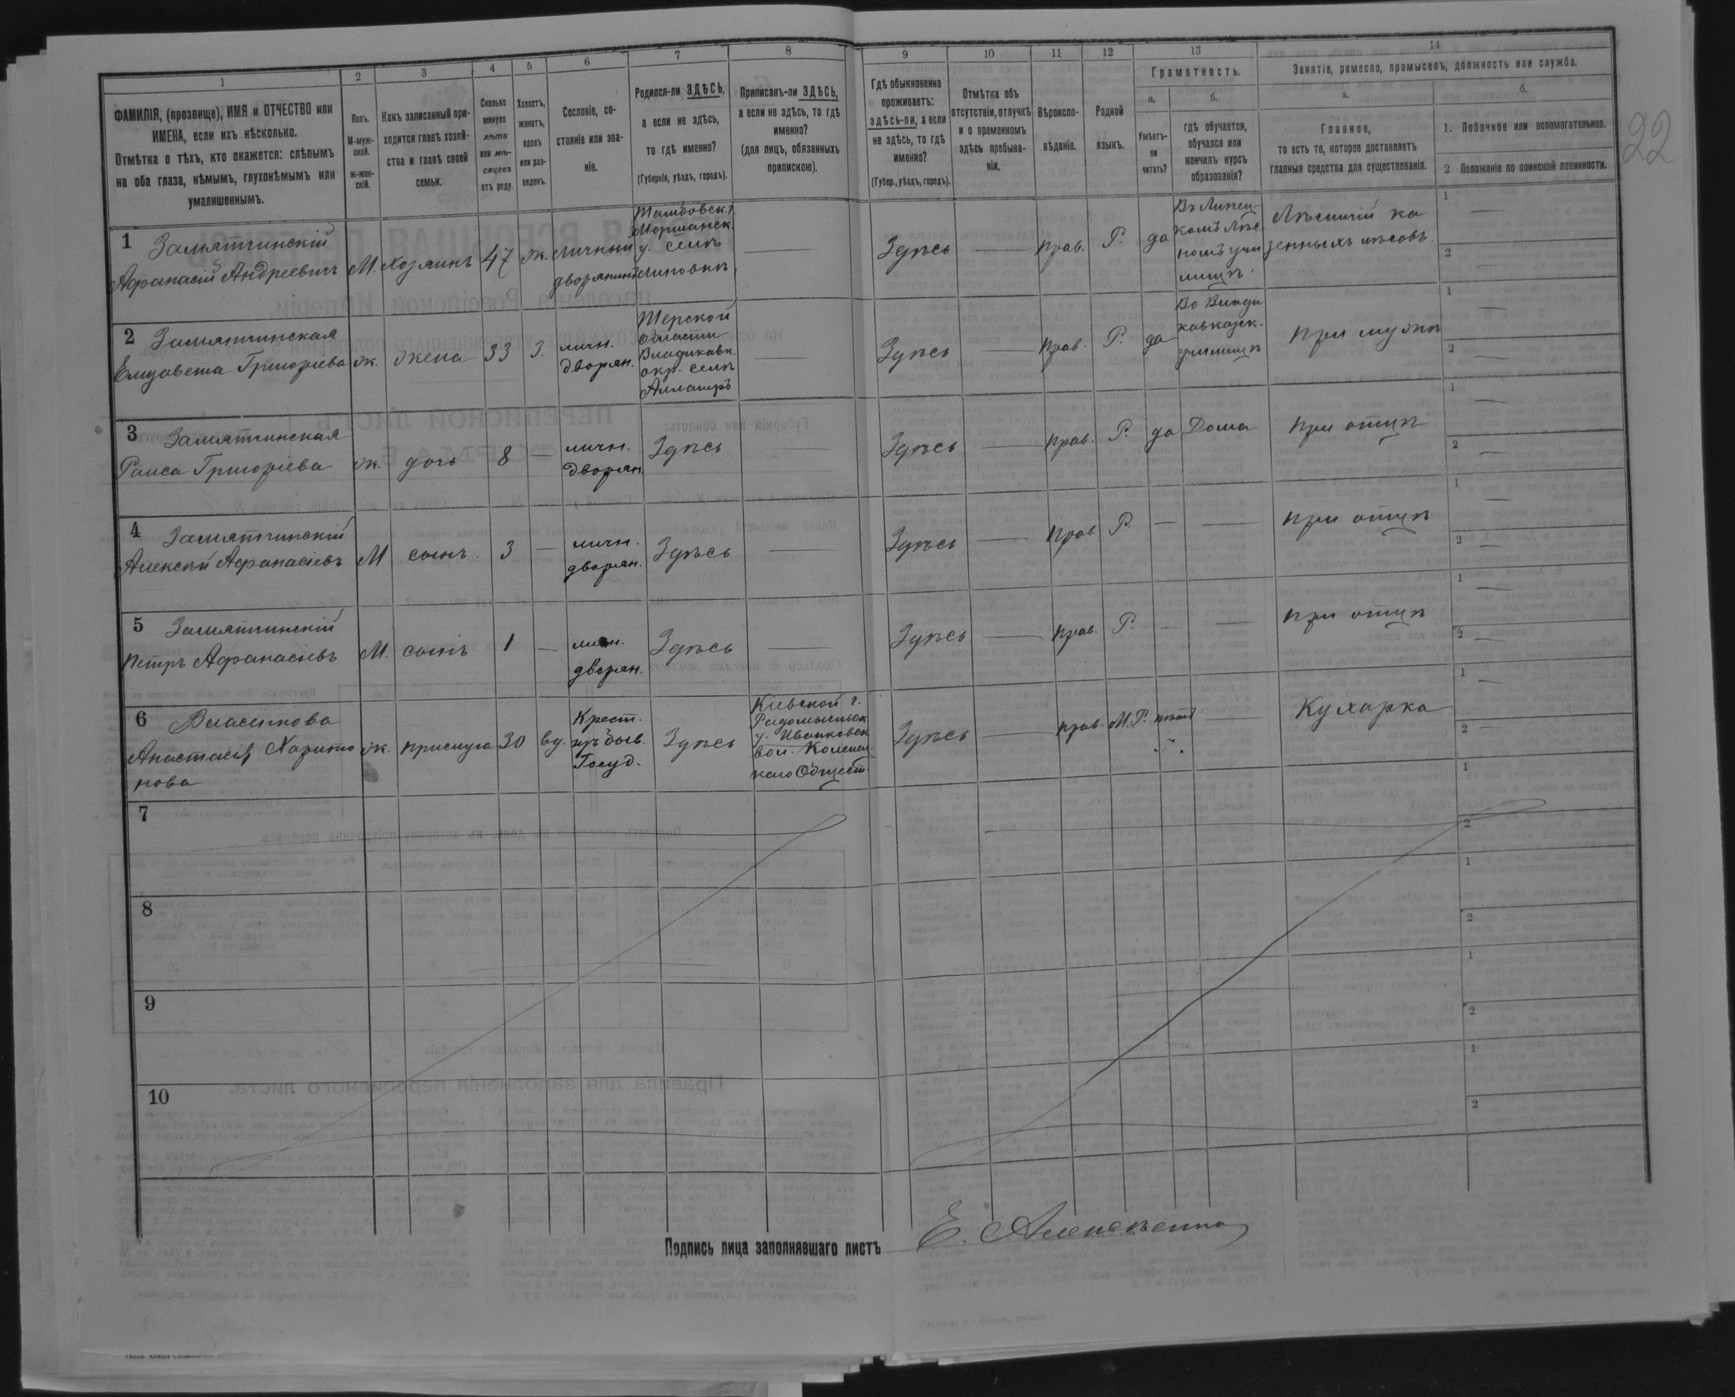 22
1
2
3
4
5
6
7
8
9
10
11
12
13
14
ФАМИЛІЯ, (прозвище), ИМЯ и ОТЧЕСТВО или
ИМЕНА, если ихъ нѣсколько.
Отмѣтка о тѣхъ, кто окажется: слѣпымъ
на оба глаза, нѣмымъ, глухонѣмымъ или
умалишеннымъ.
Полъ.
М-муж-
ской.
ж-жен-
скій.
Какъ записанный при-
ходится главѣ хозяй-
ства и главѣ своей
семьи.
Сколько
минуло
лѣтъ
или мѣ-
сяцевъ
отъ роду.
Холостъ,
женатъ,
вдовъ
или раз-
веденъ.
Сословіе, со-
стояніе или зва-
ніе.
Родился-ли ЗДѢСЬ,
а если не здѣсь,
то гдѣ именно?
(Губернія, уѣздъ, городъ).
Приписанъ-ли ЗДѢСЬ,
а если не здѣсь, то гдѣ
именно?
(для лицъ, обязанныхъ
припискою).
Гдѣ обыкновенно
проживаетъ:
здѣсь-ли, а если
не здѣсь, то гдѣ
именно?
(Губер., уѣздъ, городъ).
Отмѣтка объ
отсутствіи, отлучкѣ
и о временномъ
здѣсь пребыва-
ніи.
Вѣроиспо-
вѣданіе.
Родной
языкъ.
Грамотность.
а.
б.
Умѣетъ-
ли
читать?
гдѣ обучается,
обучался или
кончилъ курсъ
образованія?
Занятіе, ремесло, промыселъ, должность или служба.
а.
б.
Главное,
то есть то, которое доставляетъ
главныя средства для существованія.
1. Побочное или вспомогательное.
2 Положеніе по воинской повинности.
1
Замятчинскій
Афанасій Андреевичъ
М.
хозяинъ
47
ж.
личный
дворянинъ
Тамбовск. г.
Моршанск.
у. селѣ
Липовкѣ
—
Здѣсь
—
прав.
Р.
да
Въ Липец-
комъ Лѣс
номъ учи
лищѣ.
Лѣсничій ка
зенныхъ лѣсовъ.
1 —
2 —
2
Замятчинская
Елизавета Григоріева
ж.
жена
33
З.
личн.
дворян.
Терской
области
Владикавк.
окр. селѣ
Алагирѣ
Здѣсь
—
прав.
Р.
да
Во Влади
кавказск.
училищѣ
при мужѣ
1 —
2 —
3
Замятчинская
Раиса Григоріева
ж.
дочь
8
—
личн.
дворян.
Здѣсь
—
Здѣсь
—
прав.
Р.
да
Дома
при отцѣ
1 —
2 —
4
Замятчинскій
Алексѣй Афанасіевъ
М
сынъ
3
—
личн.
дворян.
Здѣсь
—
Здѣсь
—
прав
Р.
—
—
при отцѣ
1 —
2 —
5
Замятчинскій
Петръ Афанасіевъ
М.
сынъ
1
—
личн.
дворян.
Здѣсь
—
Здѣсь
—
прав.
Р.
—
—
при отцѣ
1 —
2 —
6
Власенкова
Анастасія
нова
ж.
прислуга
30
вд.
Крест.
изъ быв.
Госуд.
Здѣсь
Кіевской г.
Радомысльск
у. Иванковск
вол.
каго Общест.
Здѣсь
—
прав.
М.Р.
нѣтъ
—
Кухарка
1 —
2 —
7
1
2
8
1
2
9
1
2
10
1
2
Подпись лица заполнявшаго листъ
Е.